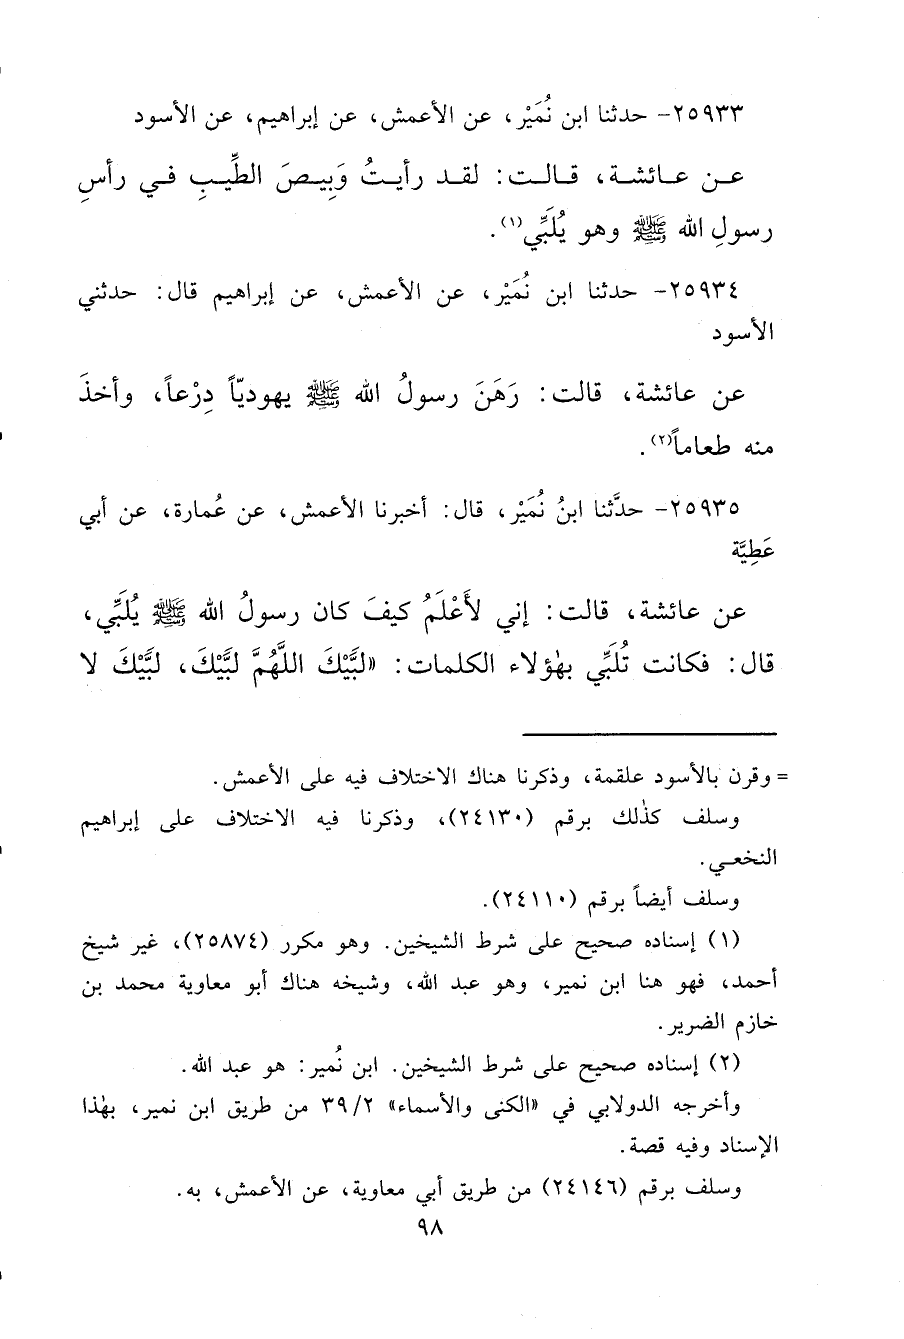 ٢٥٩٣٣- حدثنا ابن نُمَيْر، عن الأعمش، عن إبراهيم، عن الأسود
عـن عـائشـة، قـالـت: لقـد رأيـتُ وَبِيـصَ الطِّيـبِ فـي رأسِ
رسولِ الله ﷺ وهو يُلَبِّي(١).
٢٥٩٣٤- حدثنا ابن نُمَيْر، عن الأعمش، عن إبراهيم قال: حدثني
الأسود
عن عائشة، قالت: رَهَنَ رسولُ الله ﷺ يهوديّاً دِرْعاً، وأخذَ
منه طعاماً(٢).
٢٥٩٣٥- حدَّثنا ابنُ نُمَيْر، قال: أخبرنا الأعمش، عن عُمارة، عن أبي
عَطِيَّة
عن عائشة، قالت: إني لأَعْلَمُ كيفَ كان رسولُ الله ﷺ يُلَبِّي،
قال: فكانت تُلَبِّي بهٰؤلاء الكلمات: «لبَّيْكَ اللَّهُمَّ لبَّيْكَ، لبَّيْكَ لا
= وقرن بالأسود علقمة، وذكرنا هناك الاختلاف فيه على الأعمش.
وسلف كذٰلك برقم (٢٤١٣٠)، وذكرنا فيه الاختلاف على إبراهيم
النخعي.
وسلف أيضاً برقم (٢٤١١٠).
(١) إسناده صحيح على شرط الشيخين. وهو مكرر (٢٥٨٧٤)، غير شيخ
أحمد، فهو هنا ابن نمير، وهو عبد الله، وشيخه هناك أبو معاوية محمد بن
خازم الضرير.
(٢) إسناده صحيح على شرط الشيخين. ابن نُمير: هو عبد الله.
وأخرجه الدولابي في «الكنى والأسماء» ٣٩/٢ من طريق ابن نمير، بهٰذا
الإسناد وفيه قصة.
وسلف برقم (٢٤١٤٦) من طريق أبي معاوية، عن الأعمش، به.
٩٨